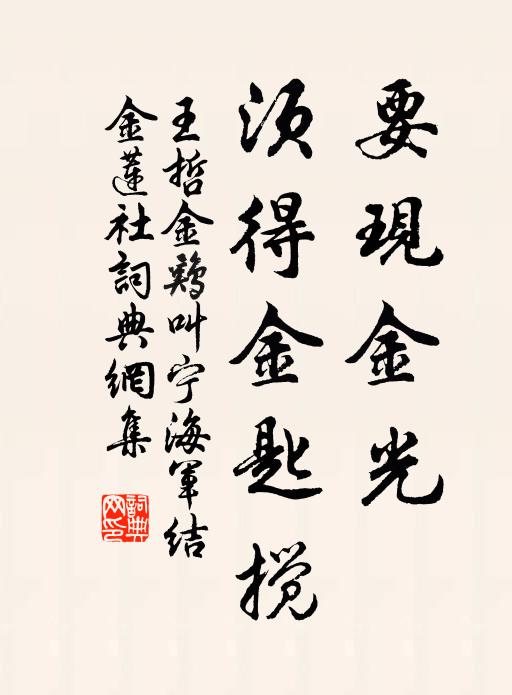 要現金光
須得金匙攪
王哲金鷄叫宁海軍结
金蓮社詞典網集
詞典网印